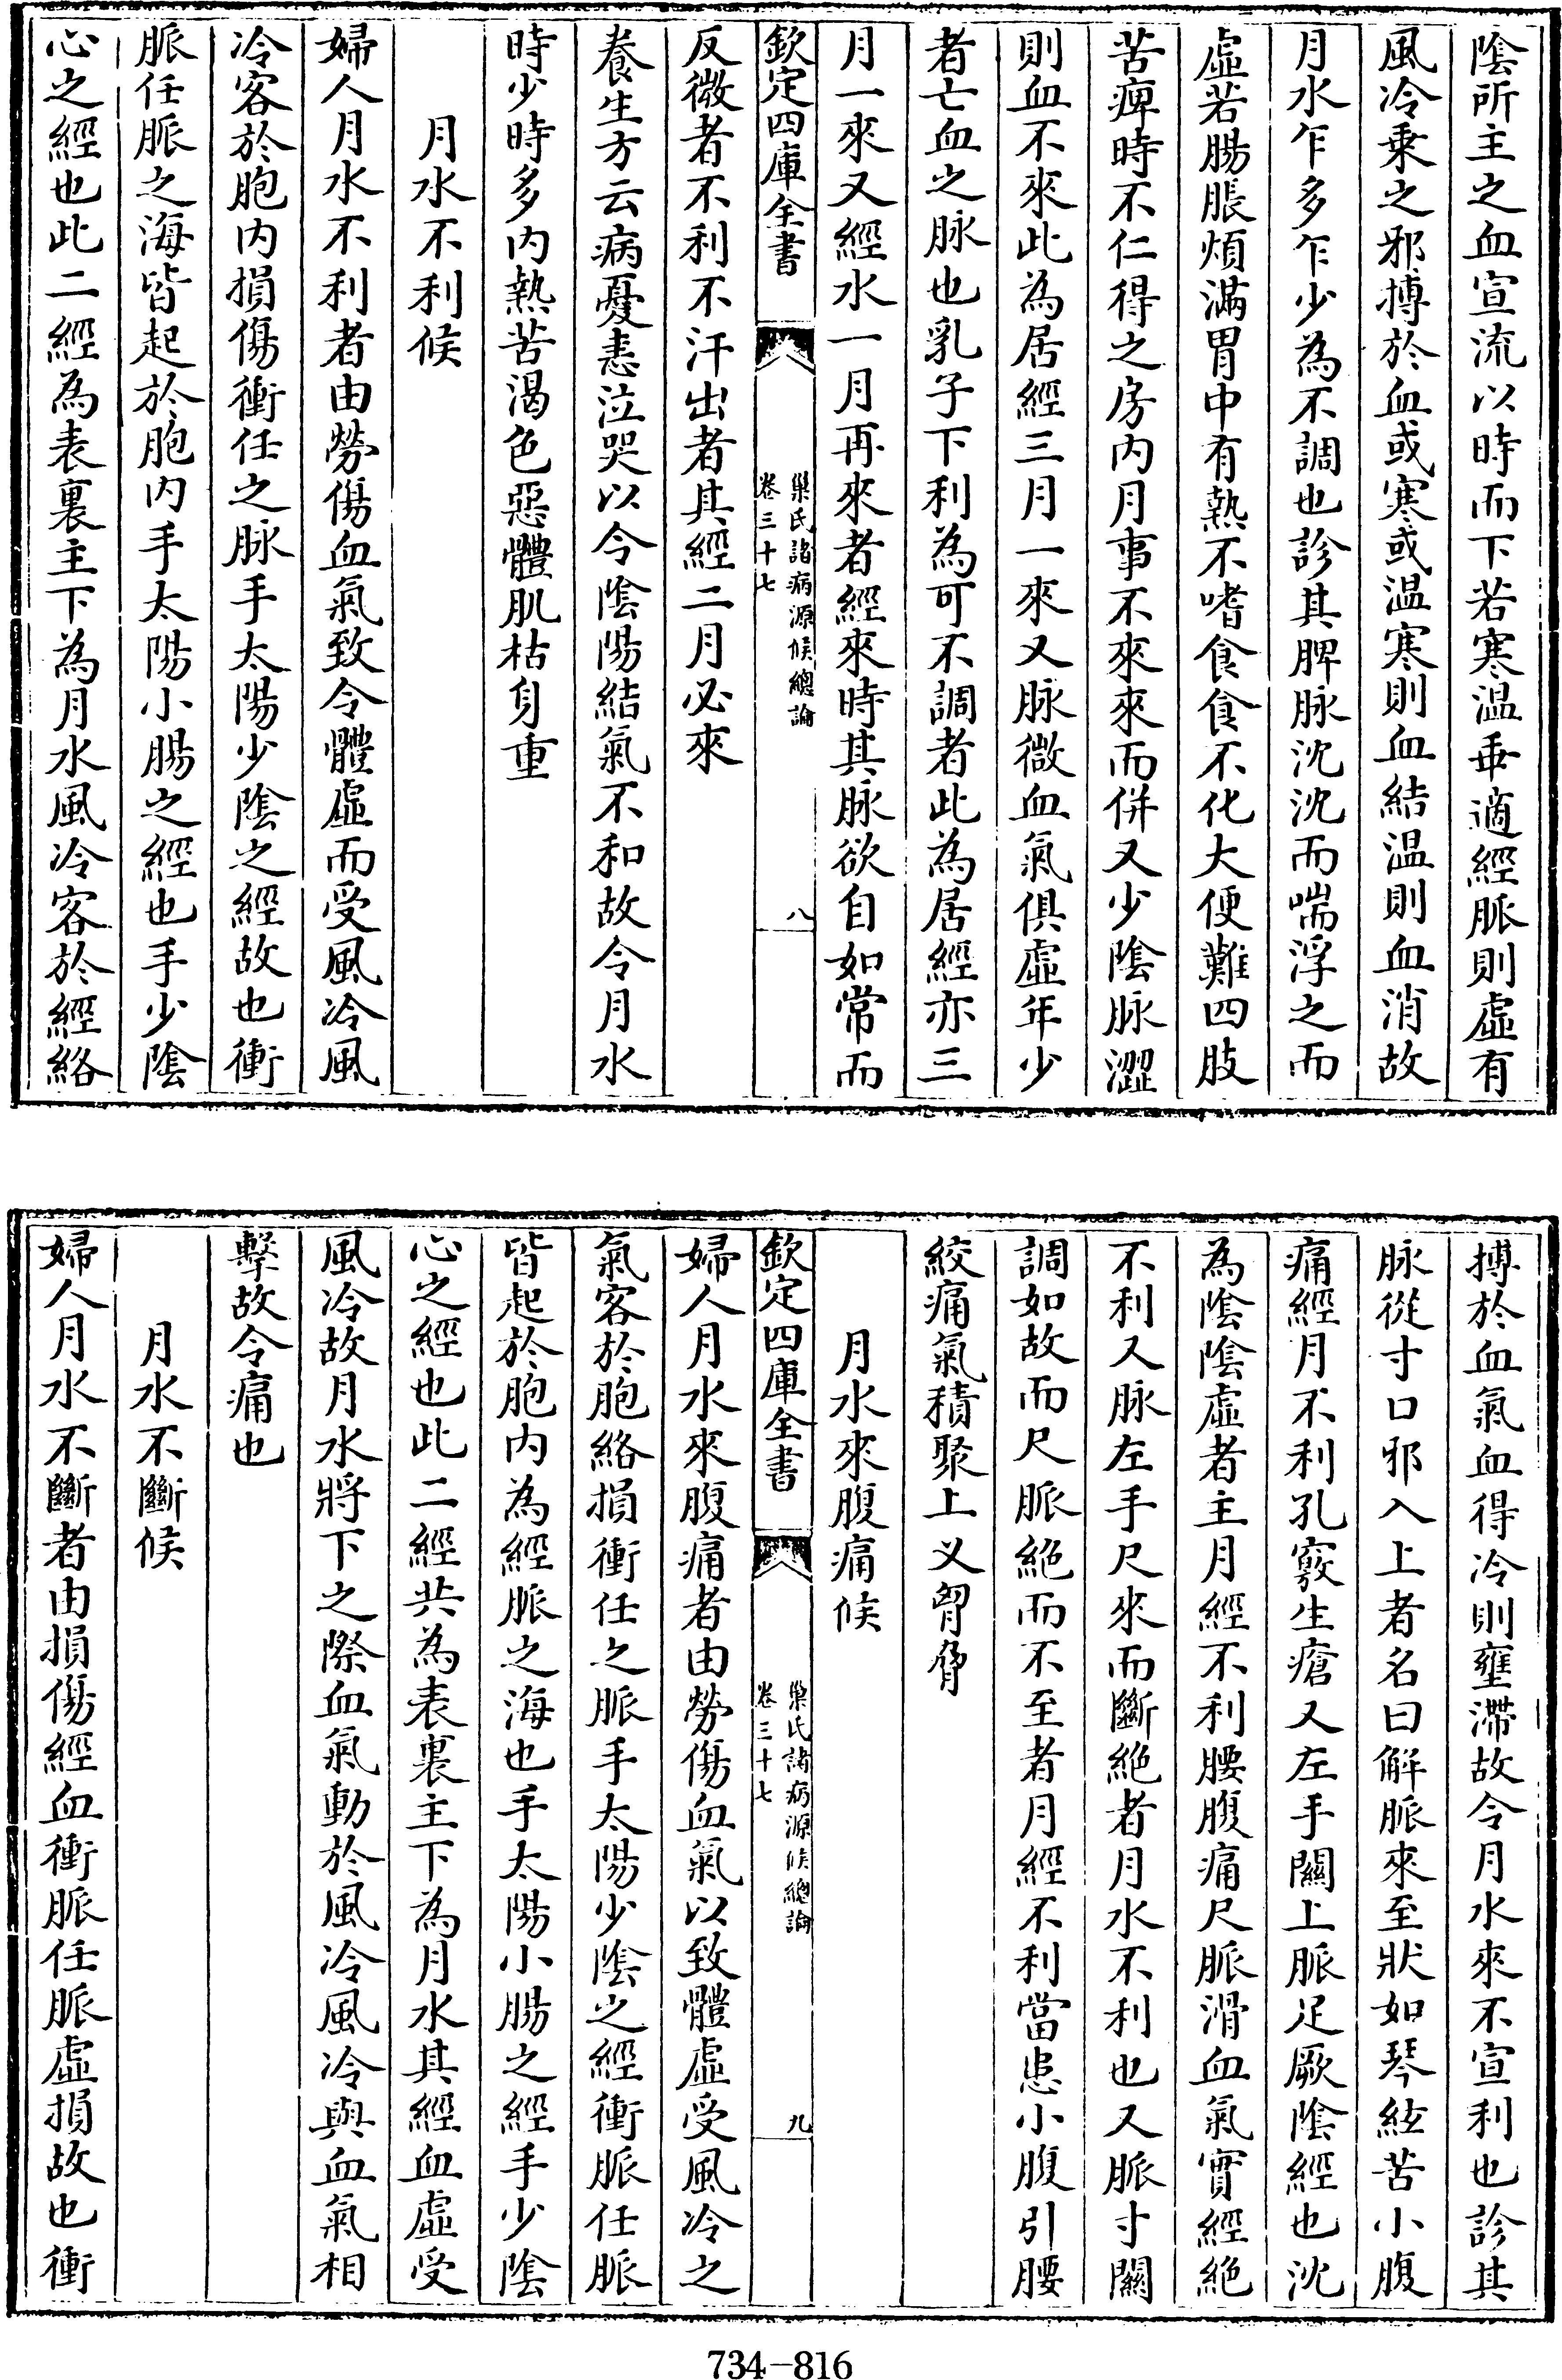 陰所主之血宣流以時而下若寒温乖適經脈則虛有
風冷乗之邪搏於血或寒或温寒則血結温則血消故
月水乍多乍少為不調也診其脾脉沈沈而喘浮之而
虛若腸脹煩滿胃中有熱不嗜食食不化大便難四肢
苦痺時不仁得之房内月事不來來而併又少陰脉澀
則血不來此為居經三月一來又脉微血氣俱虛年少
者亡血之脉也乳子下利為可不調者此為居經亦三
月一來又經水一月再來者經來時其脉欲自如常而
欽定四庫全書
巢氏諸病源候總論
卷三十七
八
反微者不利不汗出者其經二月必來
養生方云病憂恚泣哭以令陰陽結氣不和故令月水
時少時多内熱苦渴色惡體肌枯身重
月水不利候
婦人月水不利者由勞傷血氣致令體虛而受風冷風
冷客於胞内損傷衝任之脉手太陽少陰之經故也衝
脈任脈之海皆起於胞内手太陽小腸之經也手少陰
心之經也此二經為表裏主下為月水風冷客於經絡
搏於血氣血得冷則壅滯故令月水來不宣利也診其
脉從寸口邪入上者名曰解脈來至狀如琴絃苦小腹
痛經月不利孔竅生瘡又左手關上脈足厥陰經也沈
為陰陰虛者主月經不利腰腹痛尺脈滑血氣實經絶
不利又脈左手尺來而斷絶者月水不利也又脈寸關
調如故而尺脈絶而不至者月經不利當患小腹引腰
絞痛氣積聚上义胷脅
月水來腹痛候
欽定四庫全書
巢氏諸病源候總論
卷三十七
九
婦人月水來腹痛者由勞傷血氣以致體虛受風冷之
氣客於胞絡損衝任之脈手太陽少陰之經衝脈任脈
皆起於胞内為經脈之海也手太陽小腸之經手少陰
心之經也此二經共為表裏主下為月水其經血虛受
風冷故月水將下之際血氣動於風冷風冷與血氣相
擊故令痛也
月水不斷候
婦人月水不斷者由損傷經血衝脈任脈虛損故也衝
734-816